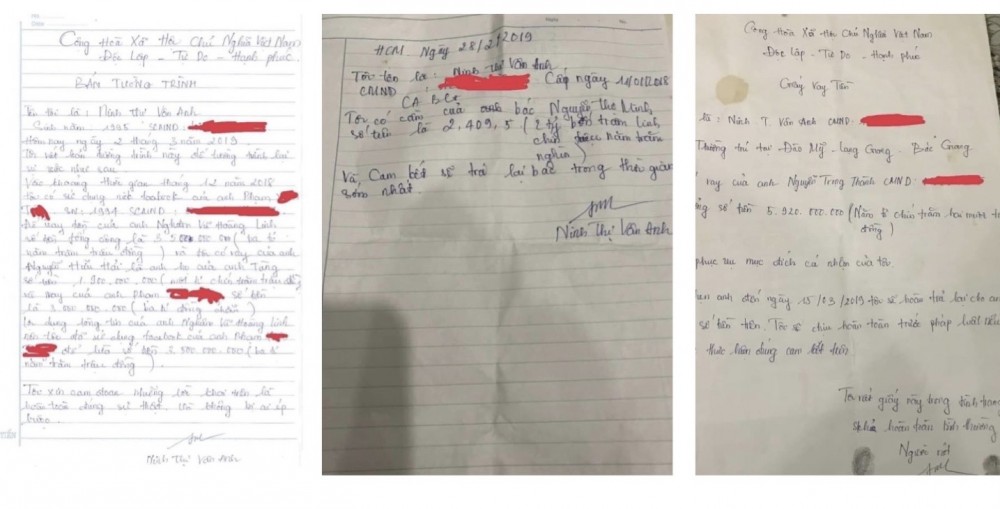 Cộng Hoà Xã Hội Chủ Nghĩa Việt Nam
Độc Lập - Tự Do - Hạnh phúc.
BẢN TƯỜNG TRÌNH
Tôi tên là: Ninh Thị Vân Anh
Sinh năm 1995 SCMND:
Hôm nay ngày 2 tháng 3 năm 2019
Tôi viết bản tường trình này để tường trình lại
về việc như sau
Vào khoảng thời gian tháng 12 năm 2018
tôi có sử dụng nick facebook của anh Phạm
SN: 1994 SCMND:
để vay tiền của anh Nghiêm Vũ Hoàng Linh
số tiền tổng cộng là 3.500.000.000 (ba tỉ
năm trăm triệu đồng) và tôi có vay của anh
Nguyễn Hữu Hải là anh họ của anh Tặng
số tiền 1.900.000.000 (một tỉ chín trăm triệu
và vay của anh Phạm số tiền
là 3.000.000.000 (ba tỉ đồng chẵn)
Lợi dụng lòng tin của anh Nghiêm Vũ Hoàng Linh
nên tôi đã sử dụng facebook của anh Phạm
để lừa số tiền 3.500.000.000 (ba tỉ
năm trăm triệu đồng).
Tôi xin cam đoan những lời khai trên là
hoàn toàn đúng sự thật và không bị ai ép
buộc.
Ninh Thị Vân Anh
HCM. Ngày 28/2/2019
Tôi tên là: Ninh Thị Vân Anh
CMND: Cấp ngày
CA BG
Tôi có cầm của anh bác Nguyễn Thọ Ninh,
số tiền là 2,409,5 (2 tỷ bốn trăm linh
chín triệu năm trăm
nghìn)
Và Cam kết sẽ trả lại bác trong thời gian
sớm nhất.
Ninh Thị Vân Anh
Cộng Hoà Xã Hội Chủ Nghĩa Việt Nam
Độc Lập - Tự Do - Hạnh phúc
Giấy Vay Tiền
là: Ninh T. Vân Anh CMND:
Thường trú tại Đào Mỹ - Lạng Giang - Bắc Giang
vay của anh Nguyễn Trọng Thành CMND:
số tiền 5.920.000.000 (Năm tỉ chín trăm hai mươi
đồng)
phục vụ mục đích cá nhân của tôi.
anh đến ngày 15/03/2019 tôi sẽ hoàn trả lại cho anh
số tiền trên. Tôi sẽ chịu hoàn toàn trước pháp luật nếu
thực hiện đúng cam kết trên.
Tôi viết giấy này trong tình trạng
hoàn toàn bình thường
Người viết